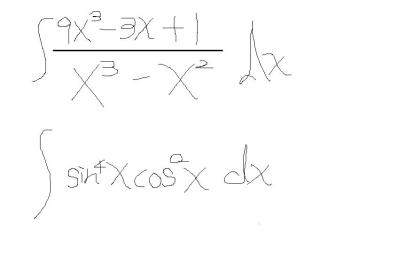 ∫ (9x³-3x+1)/(x³-x²) dx
∫ sin⁴x cos²x dx